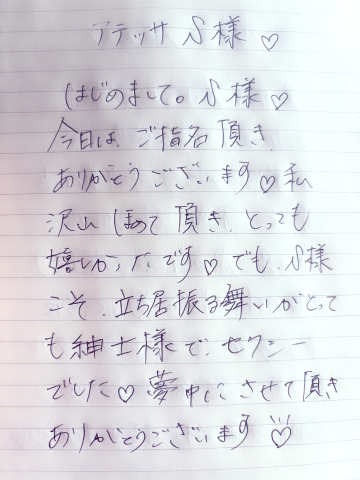 アテッサ S様♡
はじめまして。S様♡
今日は、ご指名頂き、
ありがとうございます♡私
沢山ほめて頂き、とっても
嬉しかったです♡でも、S様
こそ、立ち居振る舞いがとって
も紳士様で、セクシー
でした♡夢中にさせて頂き
ありがとうございます♡